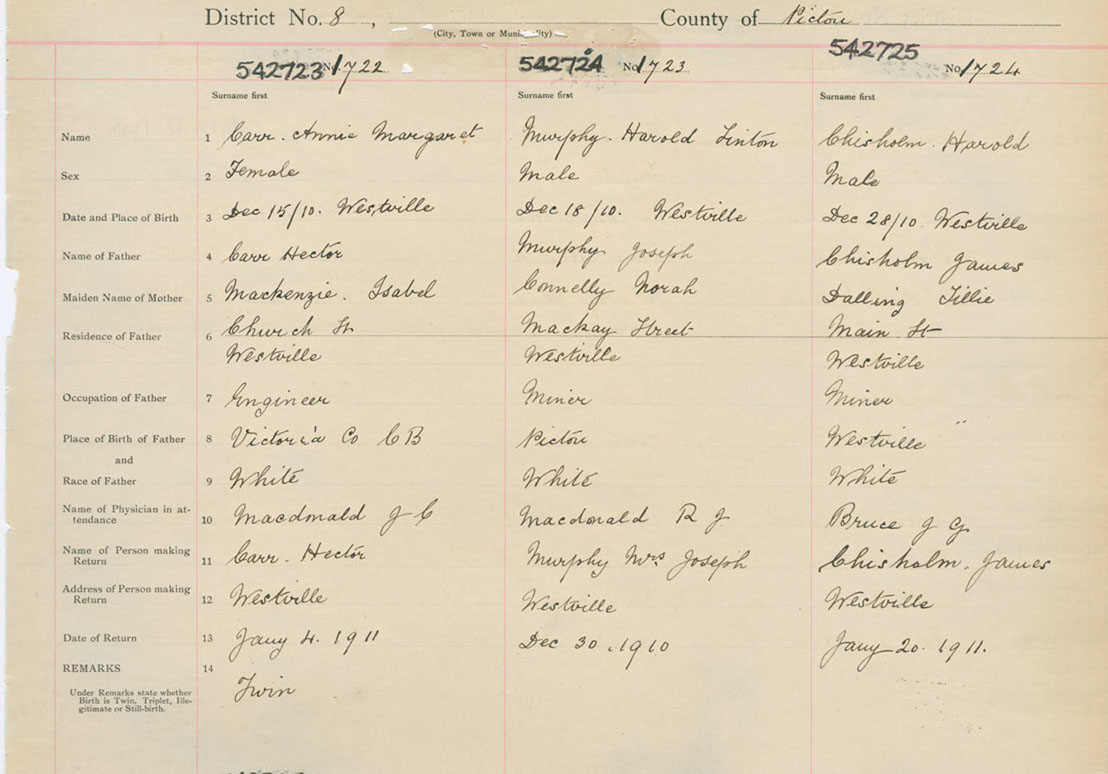 District No. 8 , County of Pictou
(City, Town or Municipality)
542723 No. 1722 542724 No. 1723 542725 No. 1724
Surname first Surname first Surname first
Name 1 Carr. Annie Margaret Murphy. Harold Linton Chisholm. Harold
Sex 2 Female Male Male
Date and Place of Birth 3 Dec 15/10. Westville Dec 18/10. Westville Dec 28/10 Westville
Name of Father 4 Carr Hector Murphy Joseph Chisholm James
Maiden Name of Mother 5 Mackenzie. Isabel Connelly Norah Dalling Tillie
Residence of Father 6 Church St Mackay Street Main St
Westville Westville Westville
Occupation of Father 7 Engineer Miner Miner
Place of Birth of Father 8 Victoria Co CB Pictou Westville
and
Race of Father 9 White White White
Name of Physician in at- 10 Macdonald J C Macdonald R J Bruce J G
tendance
Name of Person making 11 Carr. Hector Murphy Mrs Joseph Chisholm. James
Return
Address of Person making 12 Westville Westville Westville
Return
Date of Return 13 Jany 4. 1911 Dec 30. 1910 Jany 20. 1911.
REMARKS 14
Under Remarks state whether Twin
Birth is Twin, Triplet, Ille-
gitimate or Still-birth.